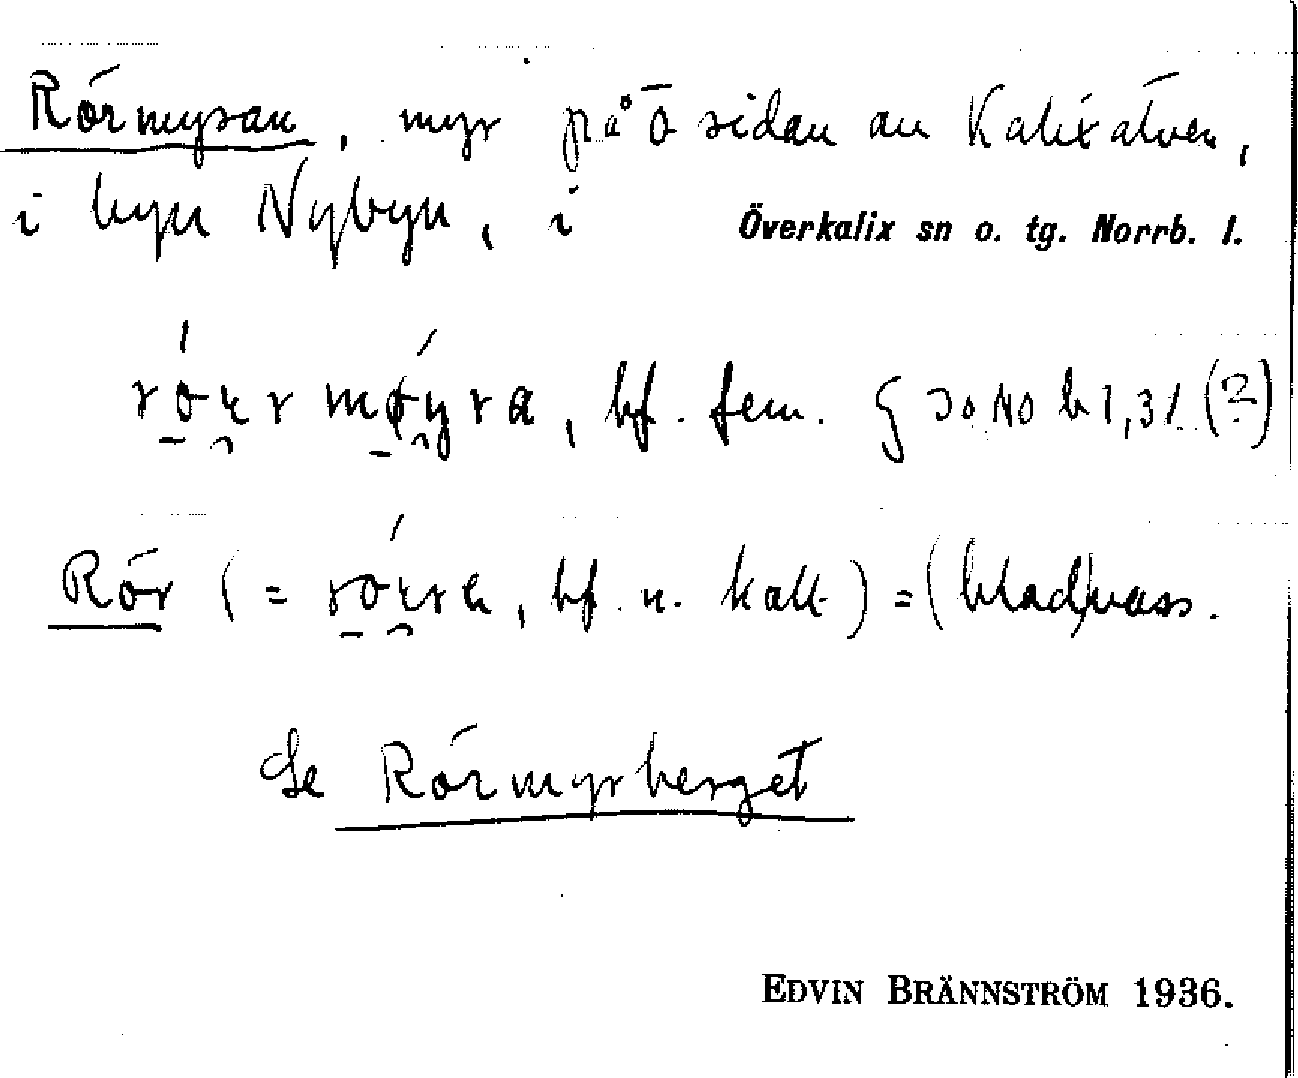 Rörmyran, myr på ö sidan av Kalixälven,
i byn Nybyn, i Överkalix sn o. tg. Norrb. l.
bf. fem. § 30 (?)
Rör (= bf. n. koll.) = (blad)vass.
Se Rörmyrberget
EDVIN BRÄNNSTRÖM 1936.